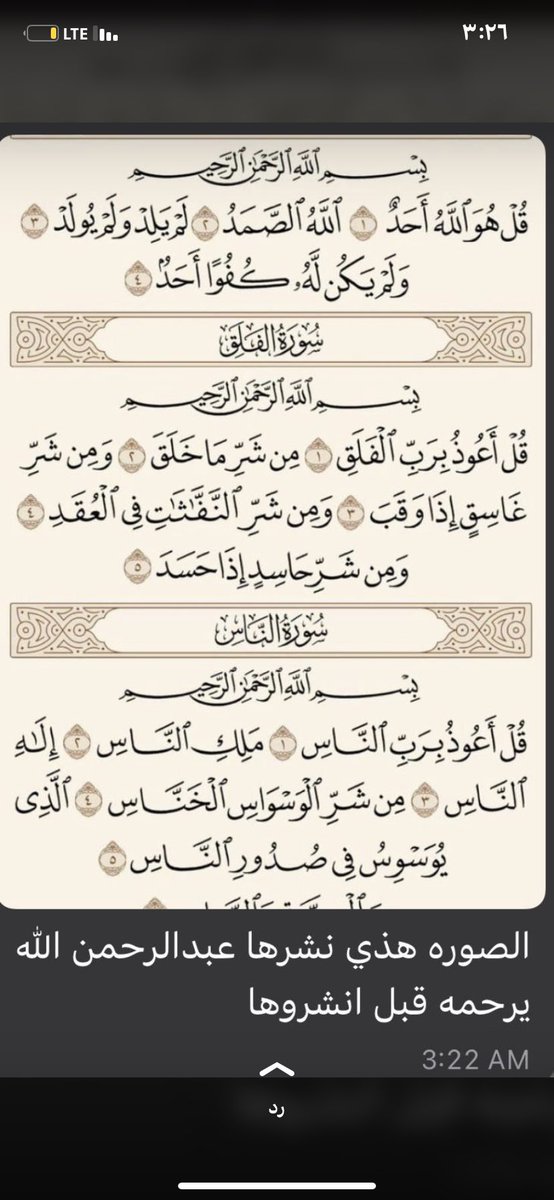 LTE ٣:٢٦
بِسْمِ ٱللَّهِ ٱلرَّحْمَٰنِ ٱلرَّحِيمِ
قُلْ هُوَ ٱللَّهُ أَحَدٌ ١ ٱللَّهُ ٱلصَّمَدُ ٢ لَمْ يَلِدْ وَلَمْ يُولَدْ ٣
وَلَمْ يَكُن لَّهُۥ كُفُوًا أَحَدٌۢ ٤
سُورَةُ الفَلَقِ
بِسْمِ ٱللَّهِ ٱلرَّحْمَٰنِ ٱلرَّحِيمِ
قُلْ أَعُوذُ بِرَبِّ ٱلْفَلَقِ ١ مِن شَرِّ مَا خَلَقَ ٢ وَمِن شَرِّ
غَاسِقٍ إِذَا وَقَبَ ٣ وَمِن شَرِّ ٱلنَّفَّٰثَٰتِ فِى ٱلْعُقَدِ ٤
وَمِن شَرِّ حَاسِدٍ إِذَا حَسَدَ ٥
سُورَةُ النَّاسِ
بِسْمِ ٱللَّهِ ٱلرَّحْمَٰنِ ٱلرَّحِيمِ
قُلْ أَعُوذُ بِرَبِّ ٱلنَّاسِ ١ مَلِكِ ٱلنَّاسِ ٢ إِلَٰهِ
ٱلنَّاسِ ٣ مِن شَرِّ ٱلْوَسْوَاسِ ٱلْخَنَّاسِ ٤ ٱلَّذِى
يُوَسْوِسُ فِى صُدُورِ ٱلنَّاسِ ٥
الصوره هذي نشرها عبدالرحمن الله
يرحمه قبل انشروها
3:22 AM
رد